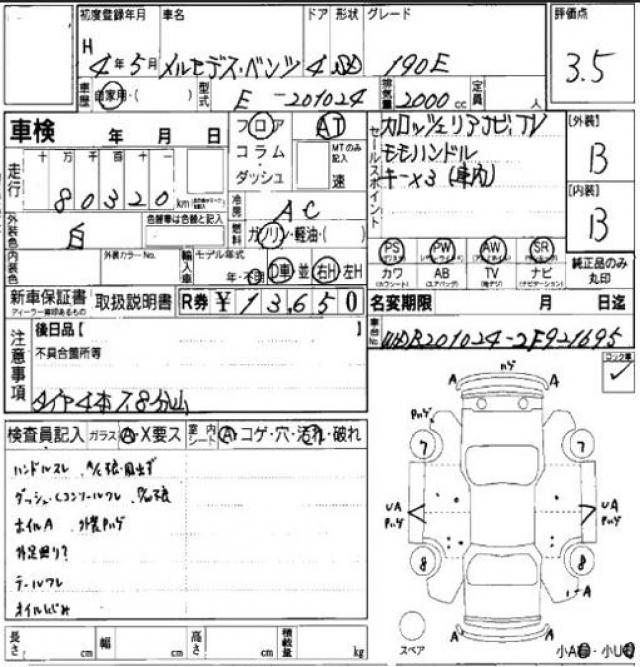 初度登録年月 車名 ドア 形状 グレード 評価点
H 4年5月 メルセデス・ベンツ 4 190E 3.5
車歴 自家用・( ) 型式 E-201024 排気量 2000 cc 定員 人
車検 年 月 日
フロア AT
コラム MTのみ記入
ダッシュ 速
セールスポイント
カロッツェリアナビ,TV
モモハンドル
キー×3 (車内)
[外装]
B
[内装]
B
走行 十万千百十一
80320 km
冷房 AC
燃料 ガソリン・軽油・( )
外装色 白 色替車は色替と記入
内装色 外装カラーNo. 輸入車 モデル年式
年・不明 D車 並 右H 左H
PS PW AW SR
カワ AB TV ナビ
純正品のみ丸印
新車保証書 取扱説明書 R券 ¥13,650
ディーラー捺印あるもの
名変期限 月 日迄
車台No. WDB201024-2F921695
注意事項
後日品【 】
不具合箇所等
タイヤ4本ス,8分山
ロック車
検査員記入 ガラス A・X要ス 室内シート A・コゲ・穴・汚れ・破れ
ハンドルスレ
ダッシュ・
ホイルA 外装ハゲ
外足廻り?
テールワレ
オイルにじみ
ハゲ
A A
7 7
UA UA
8 8
A A
A
スペア
小A・小U
長さ cm 幅 cm 高さ cm 積載量 kg